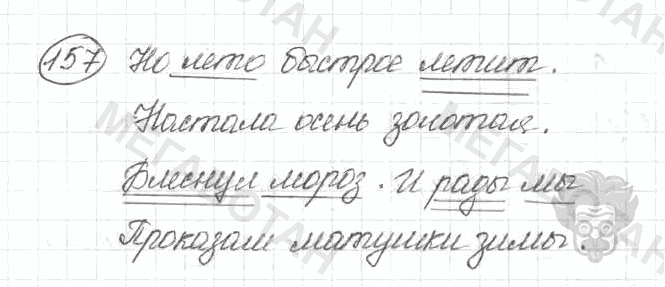 157 Но лето быстрое летит.
Настала осень золотая.
Блеснул мороз. И рады мы
Проказам матушки зимы.
МЕГАБОТАН